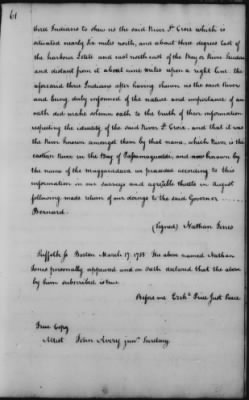 61
three Indians to shew us the said River St Croix which is
situated nearly six miles north, and about three degrees East of
the harbour L'Etete and east north east of the Bay or River Scudiac
and distant from it about nine miles upon a right line the
aforesaid three Indians after having shewn us the said River
and being duly informed of the nature and importance of an
oath did make solemn oath to the truth of their information
respecting the identity of the said River St Croix and that it was
the River known amongst them by that name, which River is the
eastern River in the Bay of Passamaquoddi and now known by
the name of the Maggacadava we proceeded according to this
information in our surveys and agreeable thereto in August
following made return of our doings to the said Governor
Bernard.
(Signed) Nathan Jones
Suffolk ss Boston March 17 1785 The above named Nathan
Jones personally appeared and on oath declared that the above
by him subscribed is true
Before me Ezekl Price Just Peace
True Copy
Attest John Avery junr Secretary